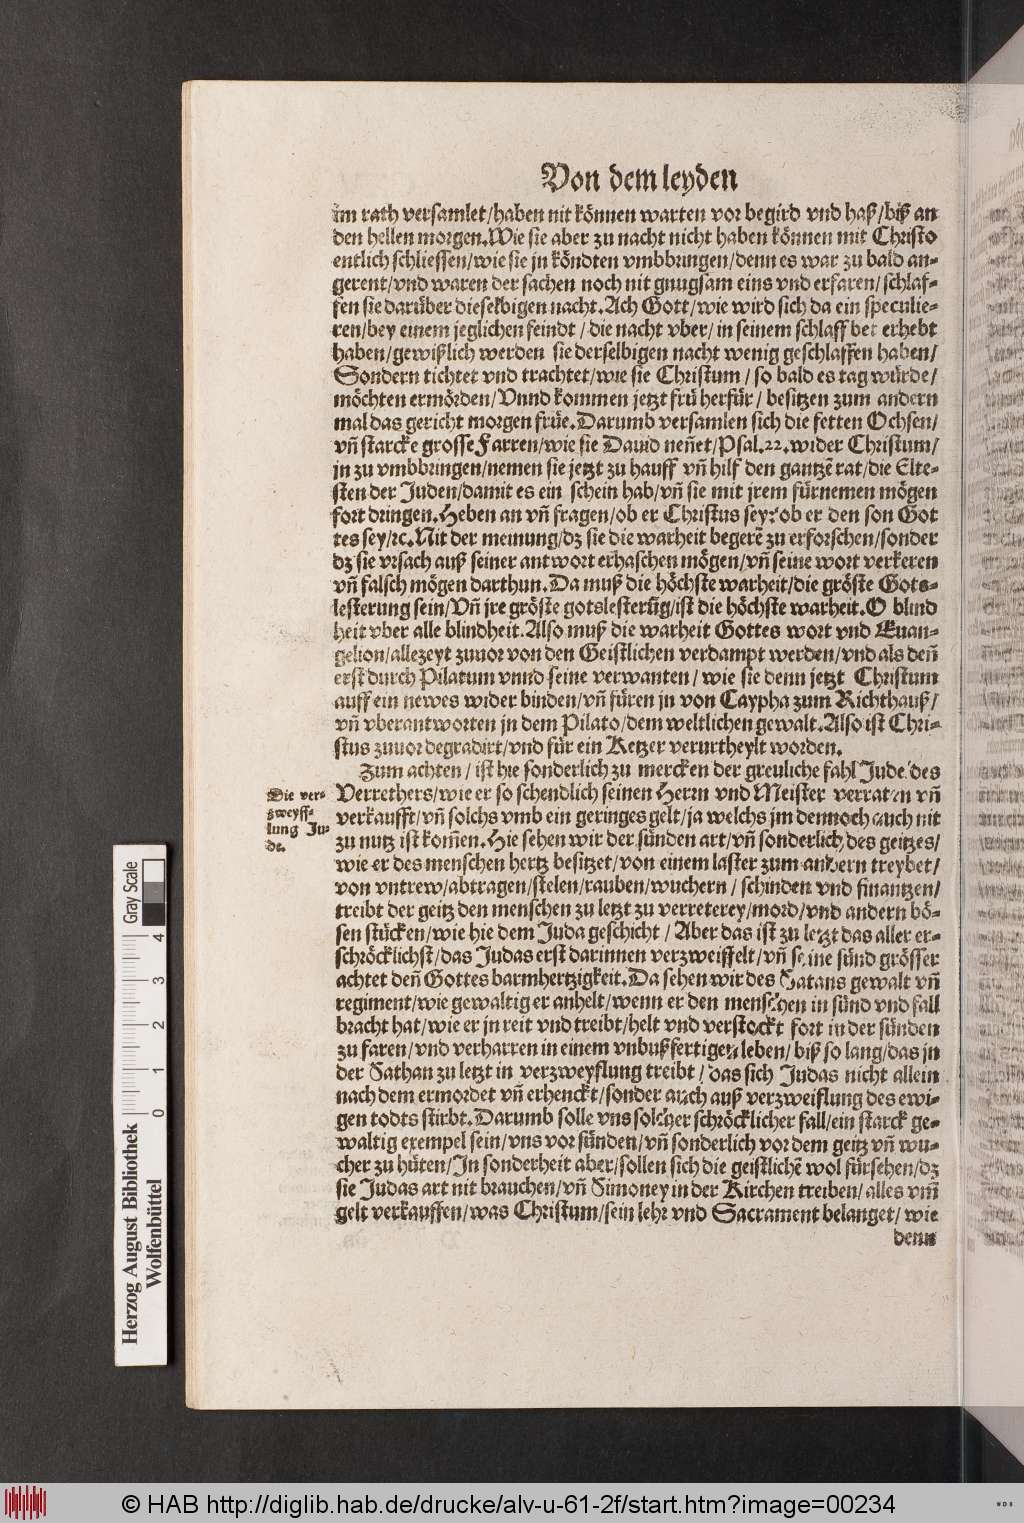 Von dem leyden
im rath versamlet/haben nit können warten vor begird vnd haß/biß an
den hellen morgen.Wie sie aber zu nacht nicht haben können mit Christo
entlich schliessen/wie sie jn köndten vmbbringen/denn es war zu bald an-
gerent/vnd waren der sachen noch nit gnugsam eins vnd erfaren/schlaf-
fen sie darüber dieselbigen nacht.Ach Gott/wie wird sich da ein speculie-
ren/bey einem jeglichen feindt/die nacht vber/in seinem schlaff bet erhebt
haben/gewißlich werden sie derselbigen nacht wenig geschlaffen haben/
Sondern tichtet vnd trachtet/wie sie Christum/so bald es tag würde/
möchten ermörden/Vnnd kommen jetzt frü herfür/besitzen zum andern
mal das gericht morgen früe.Darumb versamlen sich die fetten Ochsen/
vñ starcke grosse Farren/wie sie Dauid neñet/Psal.22.wider Christum/
jn zu vmbbringen/nemen sie jetzt zu hauff vñ hilf den gantzẽ rat/die Elte-
sten der Juden/damit es ein schein hab/vñ sie mit jrem fürnemen mögen
fort dringen.Heben an vñ fragen/ob er Christus sey?ob er den son Got
tes sey/ꝛc.Nit der meinung/dz sie die warheit begerẽ zu erforschen/sonder
dz sie vrsach auß seiner antwort erhaschen mögen/vñ seine wort verkeren
vñ falsch mögen darthun.Da muß die höchste warheit/die gröste Gots-
lesterung sein/Vñ jre gröste gotslesterũg/ist die höchste warheit.O blind
heit vber alle blindheit.Also muß die warheit Gottes wort vnd Euan-
gelion/allezeyt zuuor von den Geistlichen verdampt werden/vnd als deñ
erst durch Pilatum vnnd seine verwanten/wie sie denn jetzt Christum
auff ein newes wider binden/vñ füren jn von Caypha zum Richthauß/
vñ vberantworten jn dem Pilato/dem weltlichen gewalt.Also ist Chri-
stus zuuor degradirt/vnd für ein Ketzer verurtheylt worden.
Zum achten/ist hie sonderlich zu mercken der greuliche fahl Jude/des
Die ver-
zweyff-
lung Ju-
de.
Verrethers/wie er so schendlich seinen Herrn vnd Meister verraten vñ
verkaufft/vñ solchs vmb ein geringes gelt/ja welchs jm dennoch auch nit
zu nutz ist kom̃en.Hie sehen wir der sünden art/vñ sonderlich des geitzes/
wie er des menschen hertz besitzet/von einem laster zum andern treybet/
von vntrew/abtragen/stelen/rauben/wuchern/schinden vnd finantzen/
treibt der geitz den menschen zu letzt zu verreterey/mord/vnd andern bö-
sen stücken/wie hie dem Juda geschicht/Aber das ist zu letzt das aller er-
schröcklichst/das Judas erst darinnen verzweiffelt/vñ seine sünd grösser
achtet deñ Gottes barmhertzigkeit.Da sehen wir des Satans gewalt vñ
regiment/wie gewaltig er anhelt/wenn er den menschen in sünd vnd fall
bracht hat/wie er jn reit vnd treibt/helt vnd verstockt fort in der sünden
zu faren/vnd verharren in einem vnbußfertigen leben/biß so lang/das jn
der Sathan zu letzt in verzweyflung treibt/das sich Judas nicht allein
nach dem ermordet vñ erhenckt/sonder auch auß verzweiflung des ewi-
gen todts stirbt.Darumb solle vns solcher schröcklicher fall/ein starck ge-
waltig exempel sein/vns vor sünden/vñ sonderlich vor dem geitz vñ wu-
cher zu hüten/In sonderheit aber/sollen sich die geistlichẽ wol fürsehen/dz
sie Judas art nit brauchen/vñ Simoney in der Kirchen treiben/alles vm̃
gelt verkauffen/was Christum/sein lehr vnd Sacrament belanget/wie
denn
Gray Scale
4 3 2 1 0
Herzog August Bibliothek
Wolfenbüttel
© HAB http://diglib.hab.de/drucke/alv-u-61-2f/start.htm?image=00234
WDB